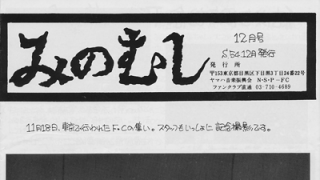 みのむし
12月号
S54.12月発行
発行所
〒153東京都目黒区下目黒3丁目24番22号
ヤマハ音楽振興会 N・S・P-FC
ファンクラブ直通 03-710-4689
11月18日、東京で行われたF.Cの集い。スタッフもいっしょに記念撮影です。